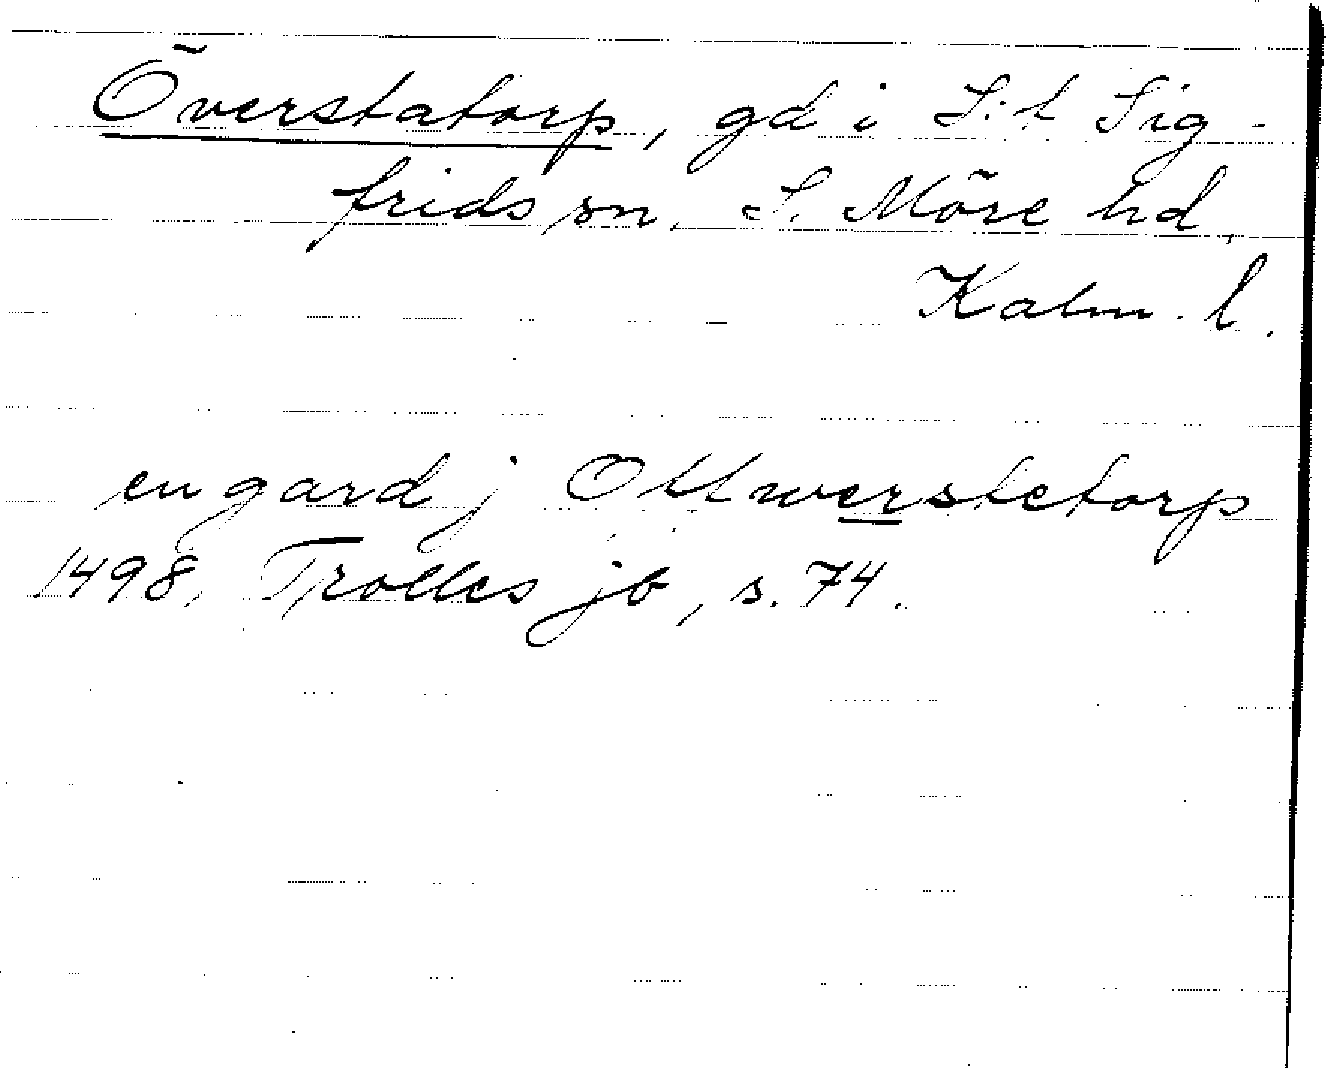 Överstatorp, gd i S:t Sig-
frids sn, S. Möre hd,
Kalm. l.
en gard j Ottwerstetorp
1498, Trolles jb, s. 74.